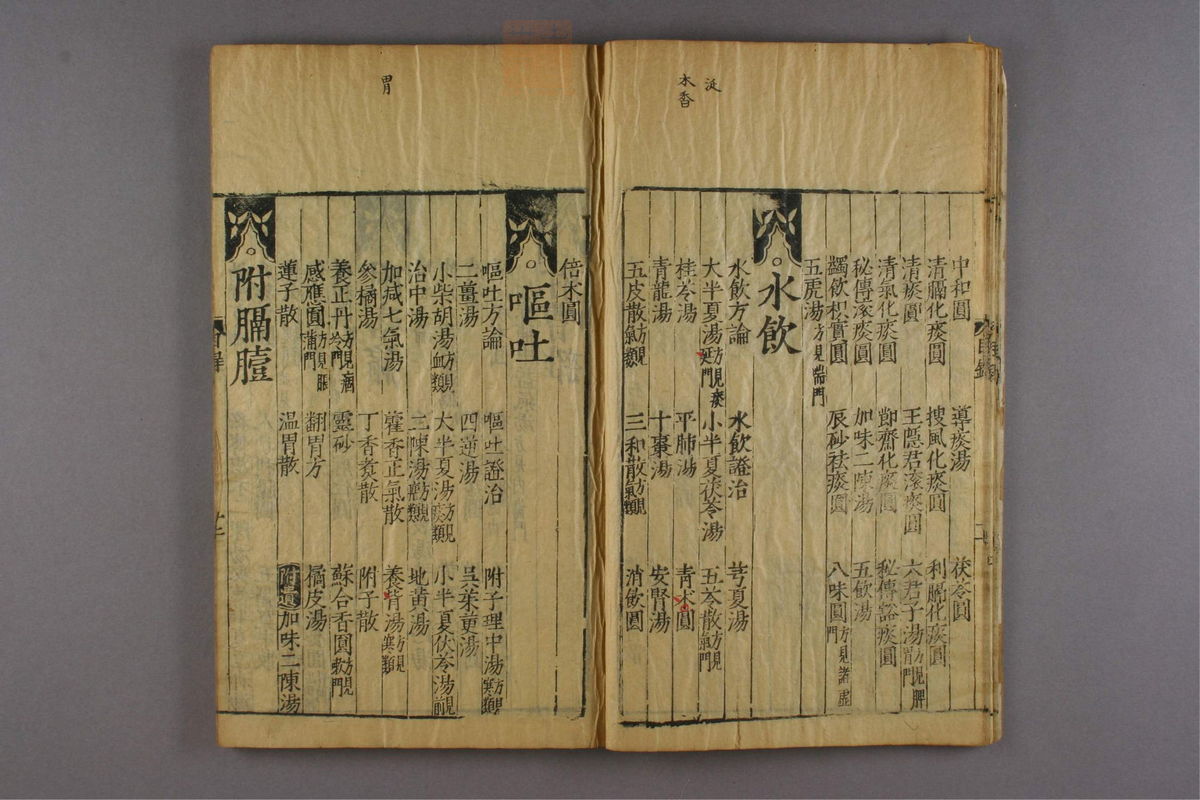 涎
木香
中和圓　導痰湯　茯苓圓
清膈化痰圓　搜風化痰圓　利膈化痰圓
清痰圓　王隱君滚痰圓　六君子湯方見脾胃門
清氣化痰圓　節齋化痰圓　秘傳豁痰圓
秘傳滚痰圓　加味二陳湯　五飲湯
蠲飲枳實圓　辰砂祛痰圓　八味圓方見諸虛門
五虎湯方見喘門
水飲
水飲方論　水飲證治　芎夏湯
大半夏湯方見痰延門　小半夏茯苓湯　五苓散方見氣門
桂苓湯　平肺湯　青木圓
青龍湯　十棗湯　安腎湯
五皮散方見氣類　三和散方見氣類　消飲圓
胃
倍术圓
嘔吐
嘔吐方論　嘔吐證治　附子理中湯方見寒類
二薑湯　四逆湯　吳茱萸湯
小柴胡湯方見血類　大半夏湯方見痰類　小半夏茯苓湯見前
治中湯　二陳湯方見痰類　地黃湯
加减七氣湯　藿香正氣散　養胃湯方見寒類
參橘湯　丁香煑散　附子散
養正丹方見痼冷門　靈砂　蘇合香圓方見氣門
感應圓方見脹滿門　翻胃方　橘皮湯
蓮子散　温胃散　附遺加味二陳湯
附膈噎